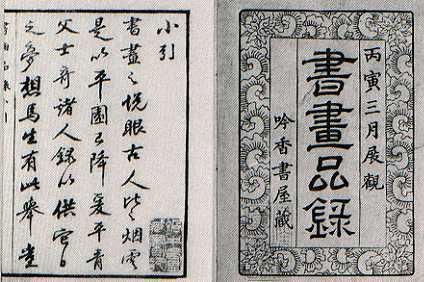 丙寅三月展觀
書畫品錄
吟香書屋藏
小引
書畫之悅眼古人比之烟雲
是以平園已降青
父士奇諸人錄以供它日
之夢想馬生有此舉